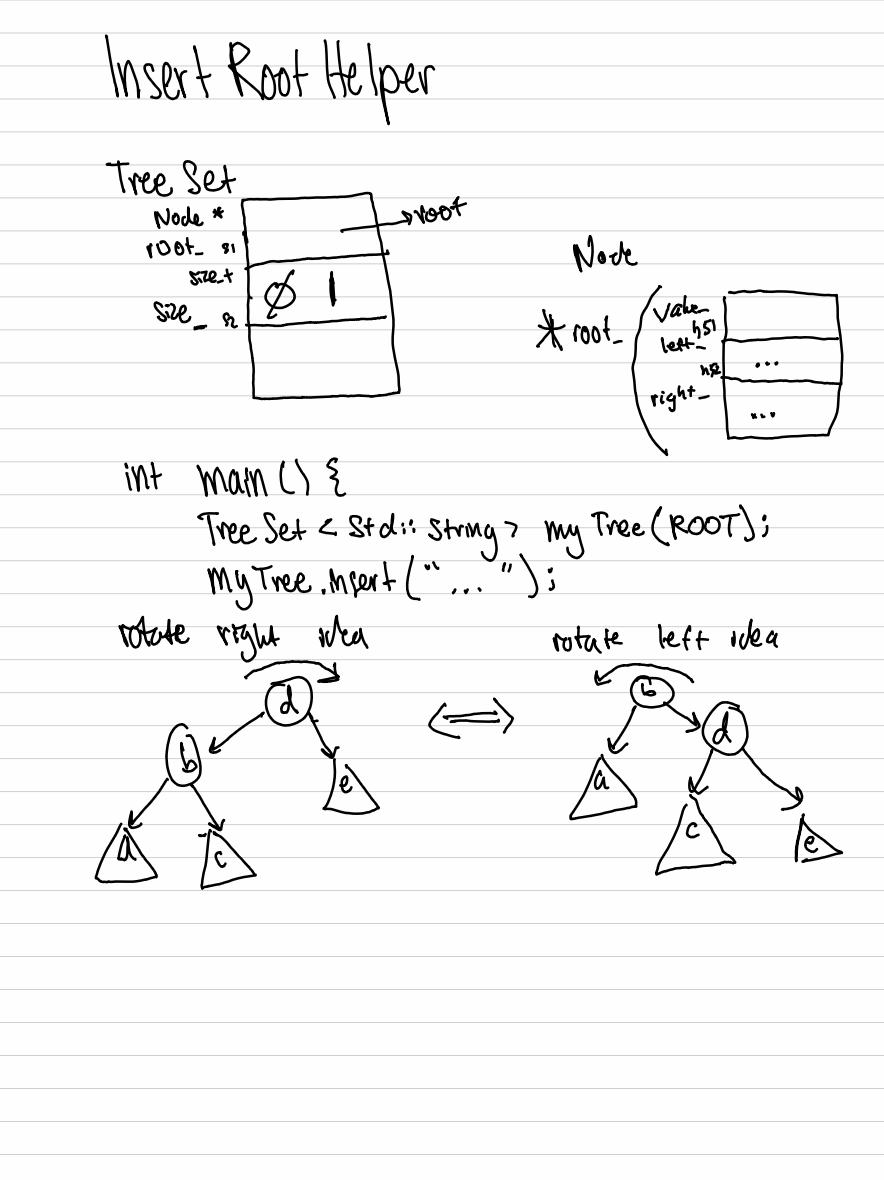 Insert Root Helper
Tree Set
Node *
root_ s1
root
size_t
size_ s2
Ø 1
Node
* root_
Value
hs1
left_
...
hs2
right_
...
int main() {
Tree Set < Std:: String > my Tree (ROOT);
my Tree.insert ("...");
rotate right idea
rotate left idea
d
b
e
a
c
b
a
d
c
e